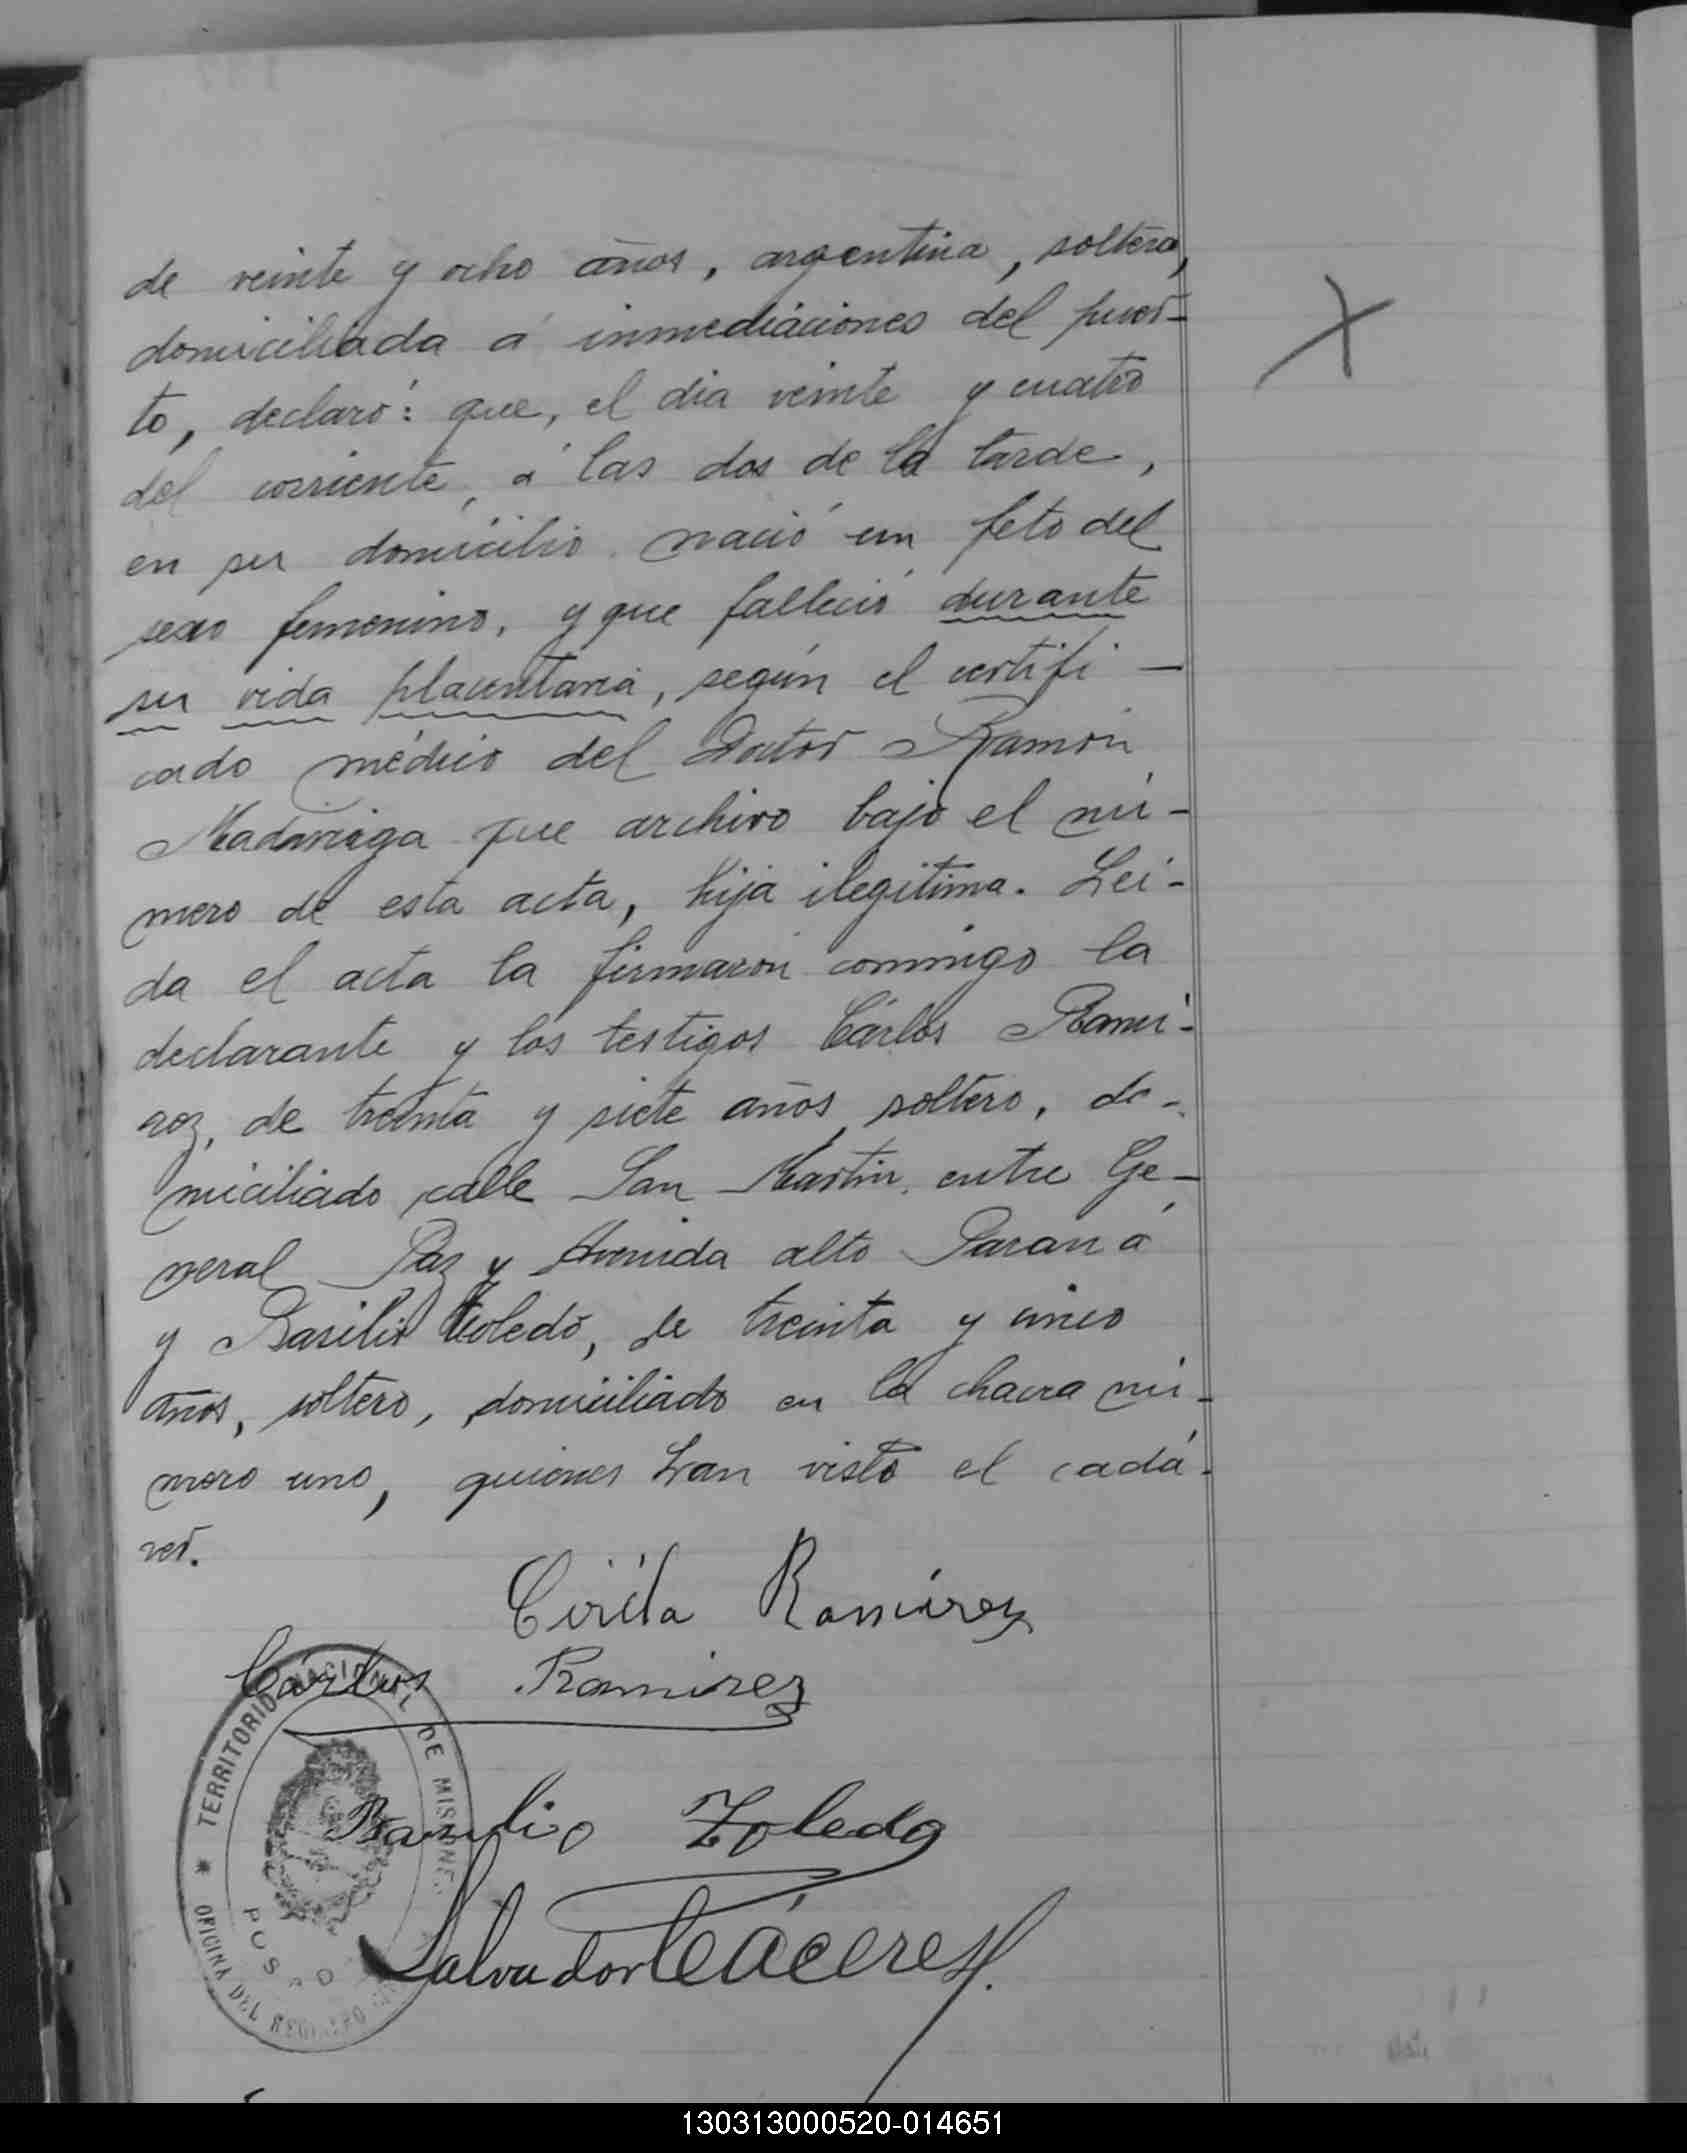 de veinte y ocho años, argentina, soltera,
domiciliada á inmediaciones del puer-
to, declaró: que, el dia veinte y cuatro
del corriente, á las dos de la tarde,
en su domicilio nació un feto del
sexo femenino, y que falleció durante
su vida placentaria, según el certifi-
cado médico del Doctor Ramón
Madariaga que archivo bajo el nú-
mero de esta acta, hija ilegitima. Lei-
da el acta la firmaron conmigo la
declarante y los testigos Cárlos Rami-
rez, de treinta y siete años, soltero, do-
miciliado calle San Martin, entre Ge-
neral Paz y Avenida alto Paraná
y Basilio Toledo, de treinta y cinco
años, soltero, domiciliado en la chacra nú-
mero uno, quienes han visto el cadá-
ver.
Cirila Ramírez
Cárlos Ramirez
TERRITORIO NACIONAL DE MISIONES
Basilio Toledo
Salvador Cáceres
OFICINA DEL
130313000520-014651